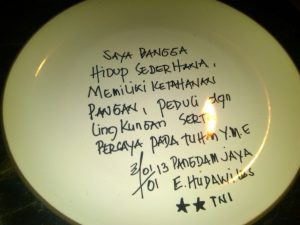 SAYA BANGGA
HIDUP SEDERHANA,
MEMILIKI KETAHANAN
PANGAN, PEDULI dgn
LINGKUNGAN SERTA
PERCAYA PADA TUHAN Y.M.E
3/01/13 PANGDAM JAYA
01 E. HUDAWI LUBIS
★★ TNI